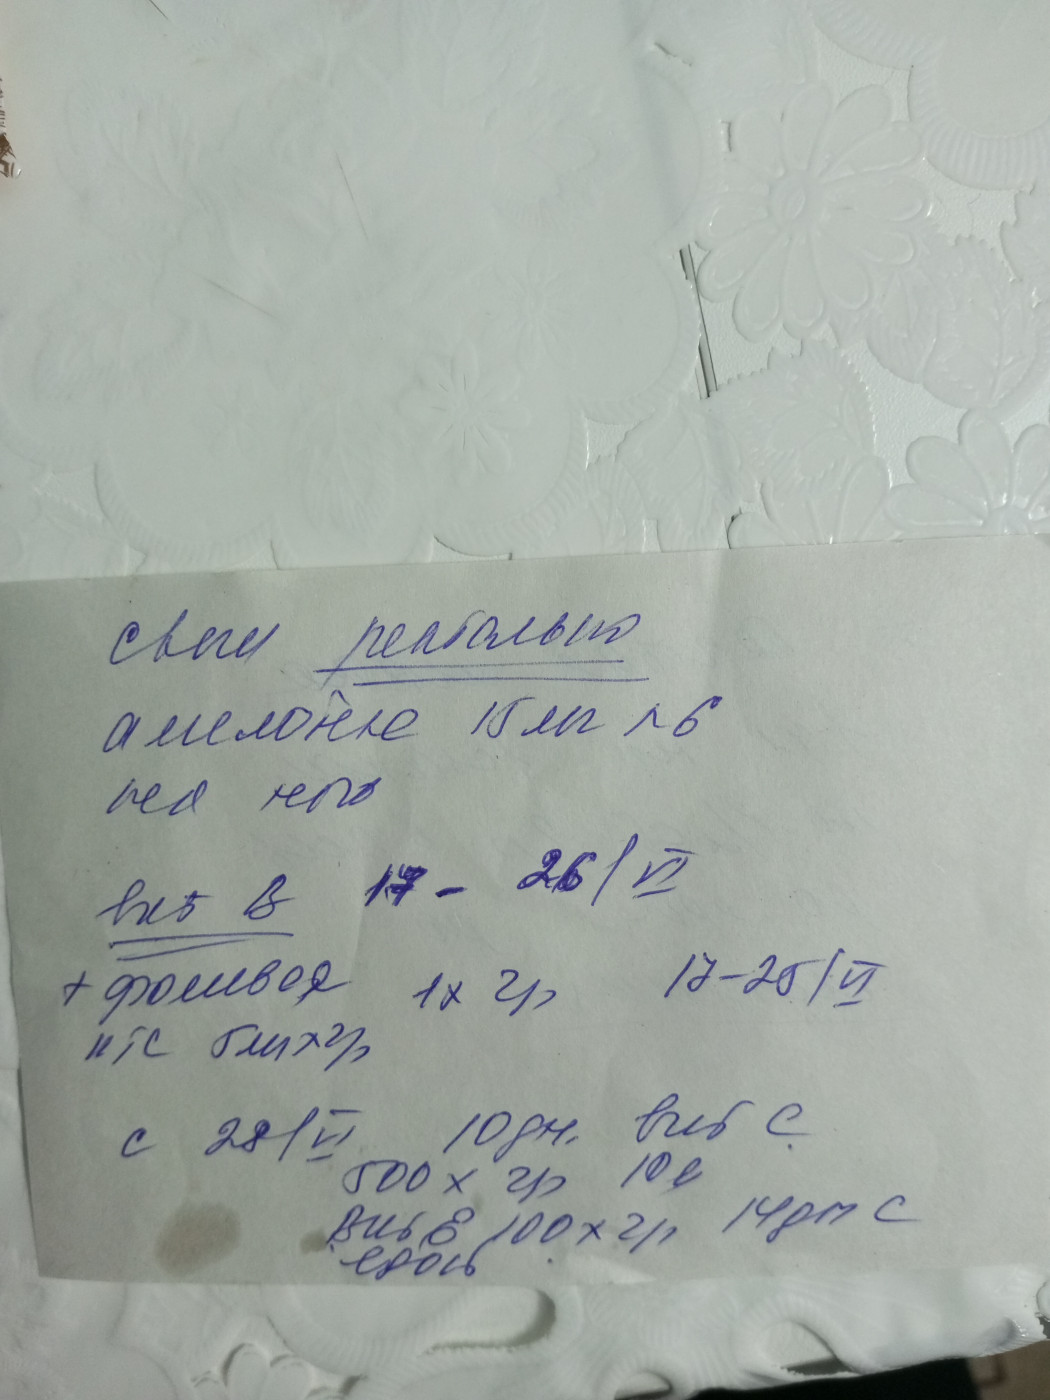 свечи ректально
15 мг № 6
на ночь
вит В 17 - 26/VI
+ фолиевая 1 х 2/р 17-25/VI
к-та 5 мг х 2/р
с 28/VI 10 дн. вит С
500 х 2/р 10 д
Вит Е 100 х 2/р 14 дн с
едой